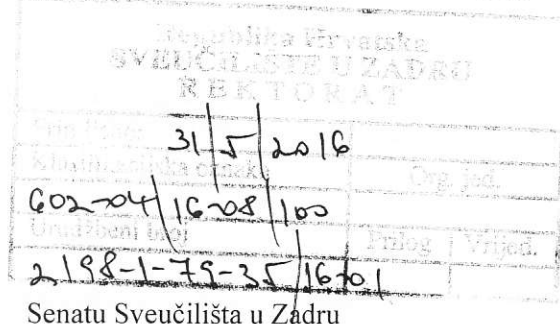 Republika Hrvatska
SVEUČILIŠTE U ZADRU
REKTORAT
31/5/2016
Klasifikacijska oznaka Org. jed.
602-04/16-08/100
Urudžbeni broj Prilog Vrijed.
2198-1-79-35/16-01
Senatu Sveučilišta u Zadru